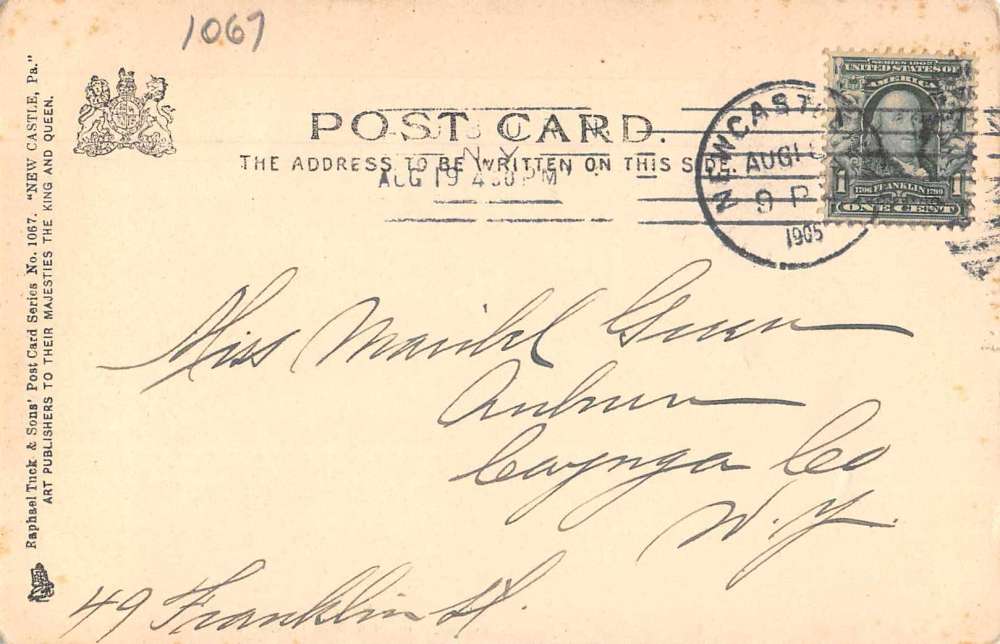 1067
POST CARD.
THE ADDRESS TO BE WRITTEN ON THIS SIDE
N.Y.
AUG 19 4 30 PM
NEW CASTLE
AUG 1
9 P
1905
SERIES 1902
UNITED STATES OF
AMERICA
1706 FRANKLIN 1790
1 1
ONE CENT
Raphael Tuck & Sons' Post Card Series No. 1067. "NEW CASTLE, Pa."
ART PUBLISHERS TO THEIR MAJESTIES THE KING AND QUEEN.
Miss Maribel
Auburn
Cayuga Co
N.Y.
49 Franklin St.